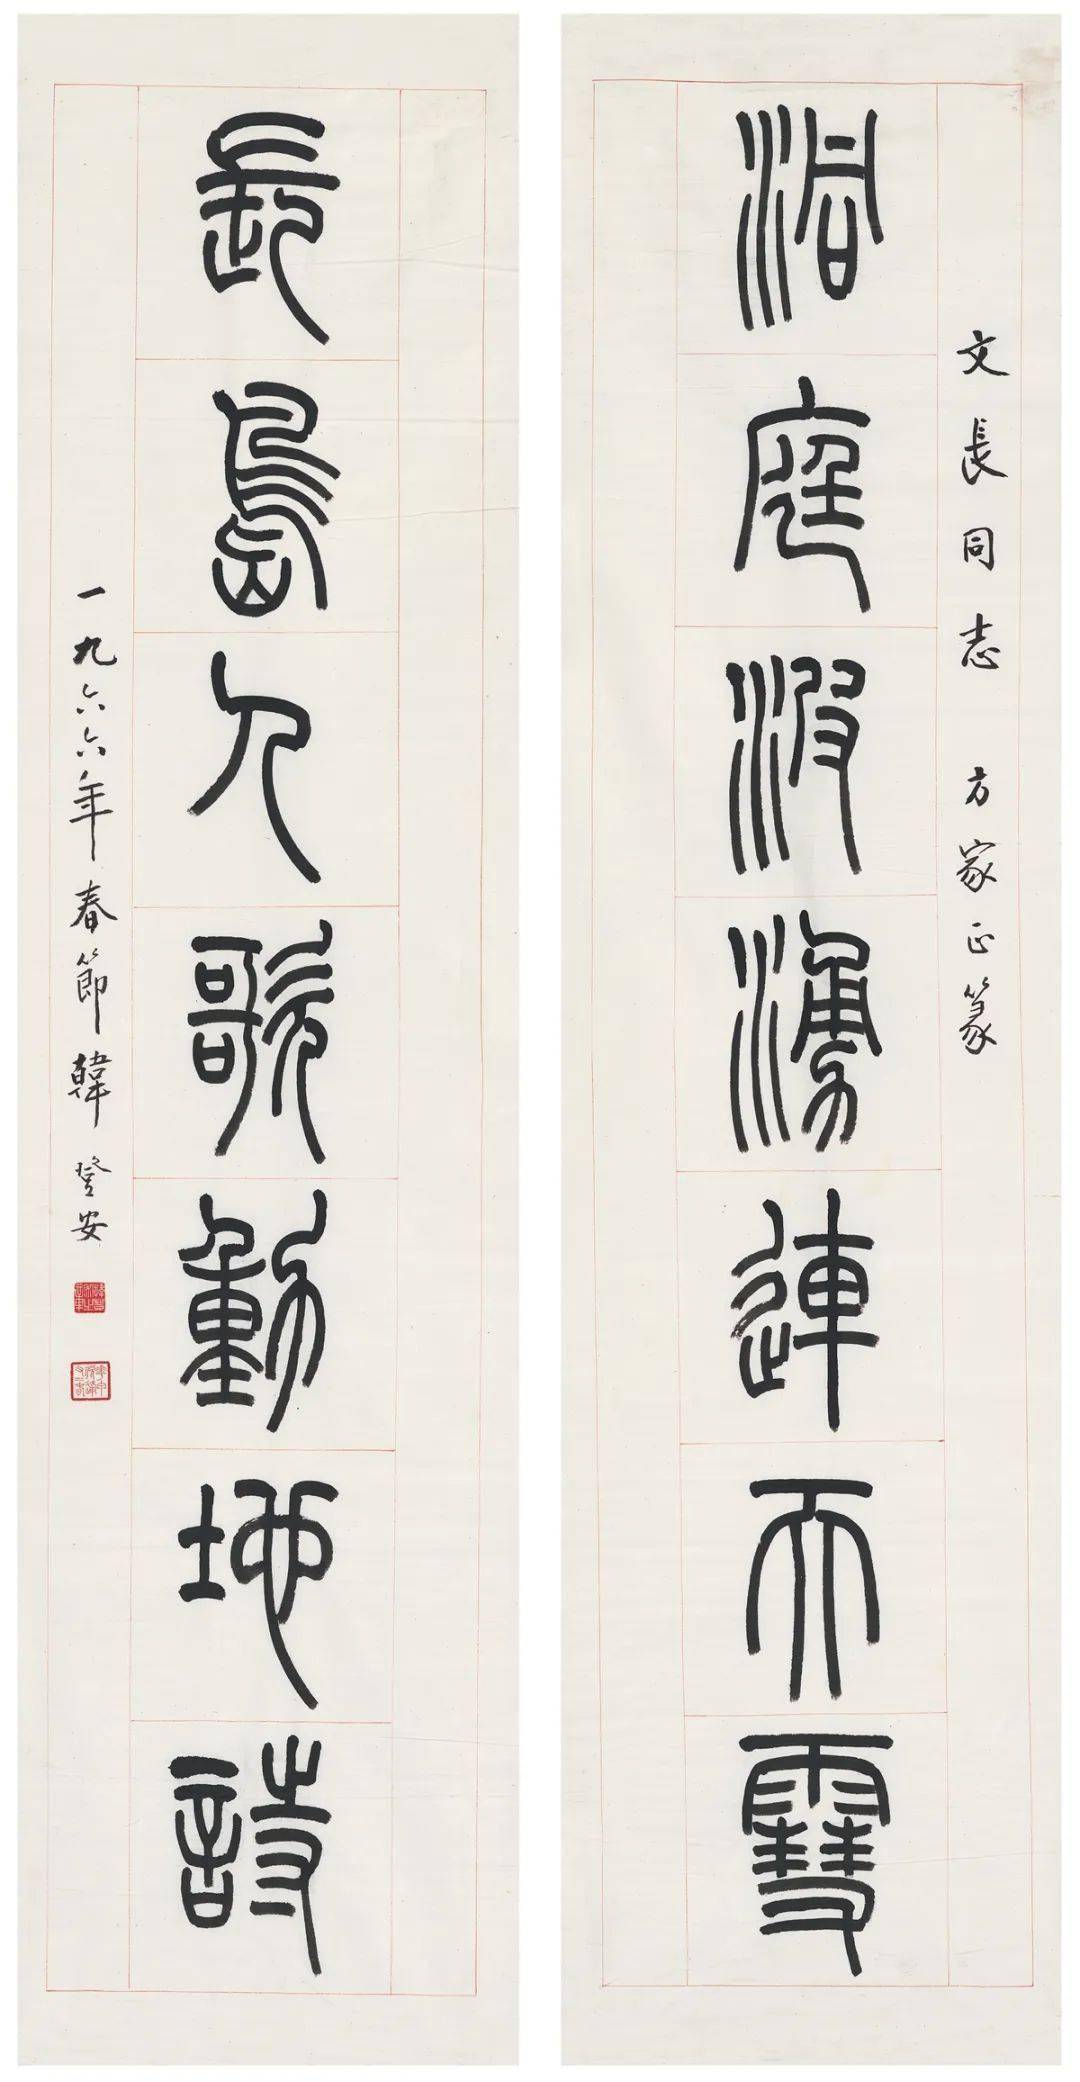 文長同志 方家正篆
洞庭波湧連天雪
長島人歌動地詩
一九六六年春節韓登安